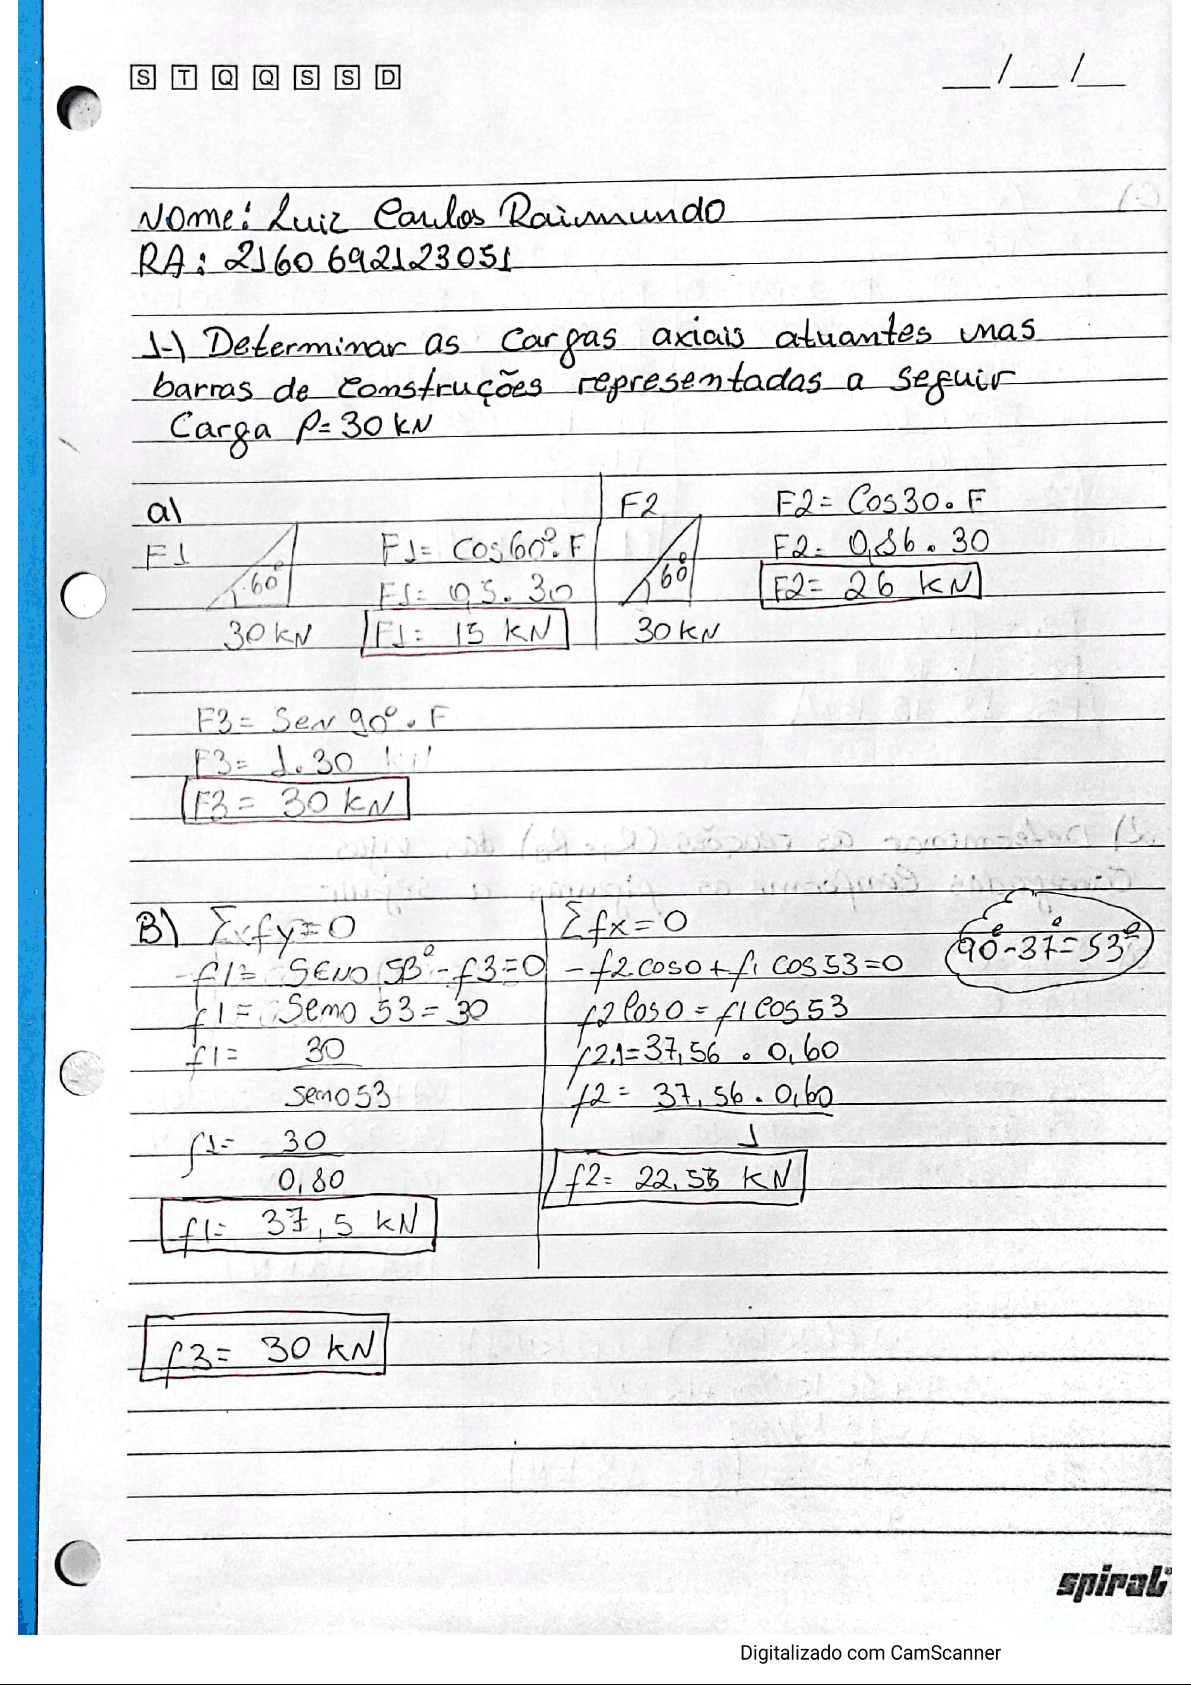 S T Q Q S S D
__/__/__
Nome: Luiz Carlos Raimundo
RA: 2160692123051
1-) Determinar as cargas axiais atuantes nas
barras de construções representadas a seguir
Carga P=30 kN
a)
F1
60°
30 kN
F1= Cos60°.F
F1= 0,5. 30
F1= 15 kN
F2
60°
30 kN
F2= Cos30. F
F2= 0,86. 30
F2= 26 kN
F3= Sen 90°. F
F3= 1.30
F3= 30 kN
B)
Σfy=0
-f1= Seno 53°-f3=0
f1= Seno 53= 30
f1= 30
seno 53
f1= 30
0,80
f1= 37,5 kN
Σfx=0
-f2.cos0+f1 cos53=0
f2 Cos0= f1 Cos53
f2.1=37,56 . 0,60
f2= 37,56 . 0,60
1
f2= 22,53 kN
90°-37°=53°
f3= 30 kN
spiral
Digitalizado com CamScanner